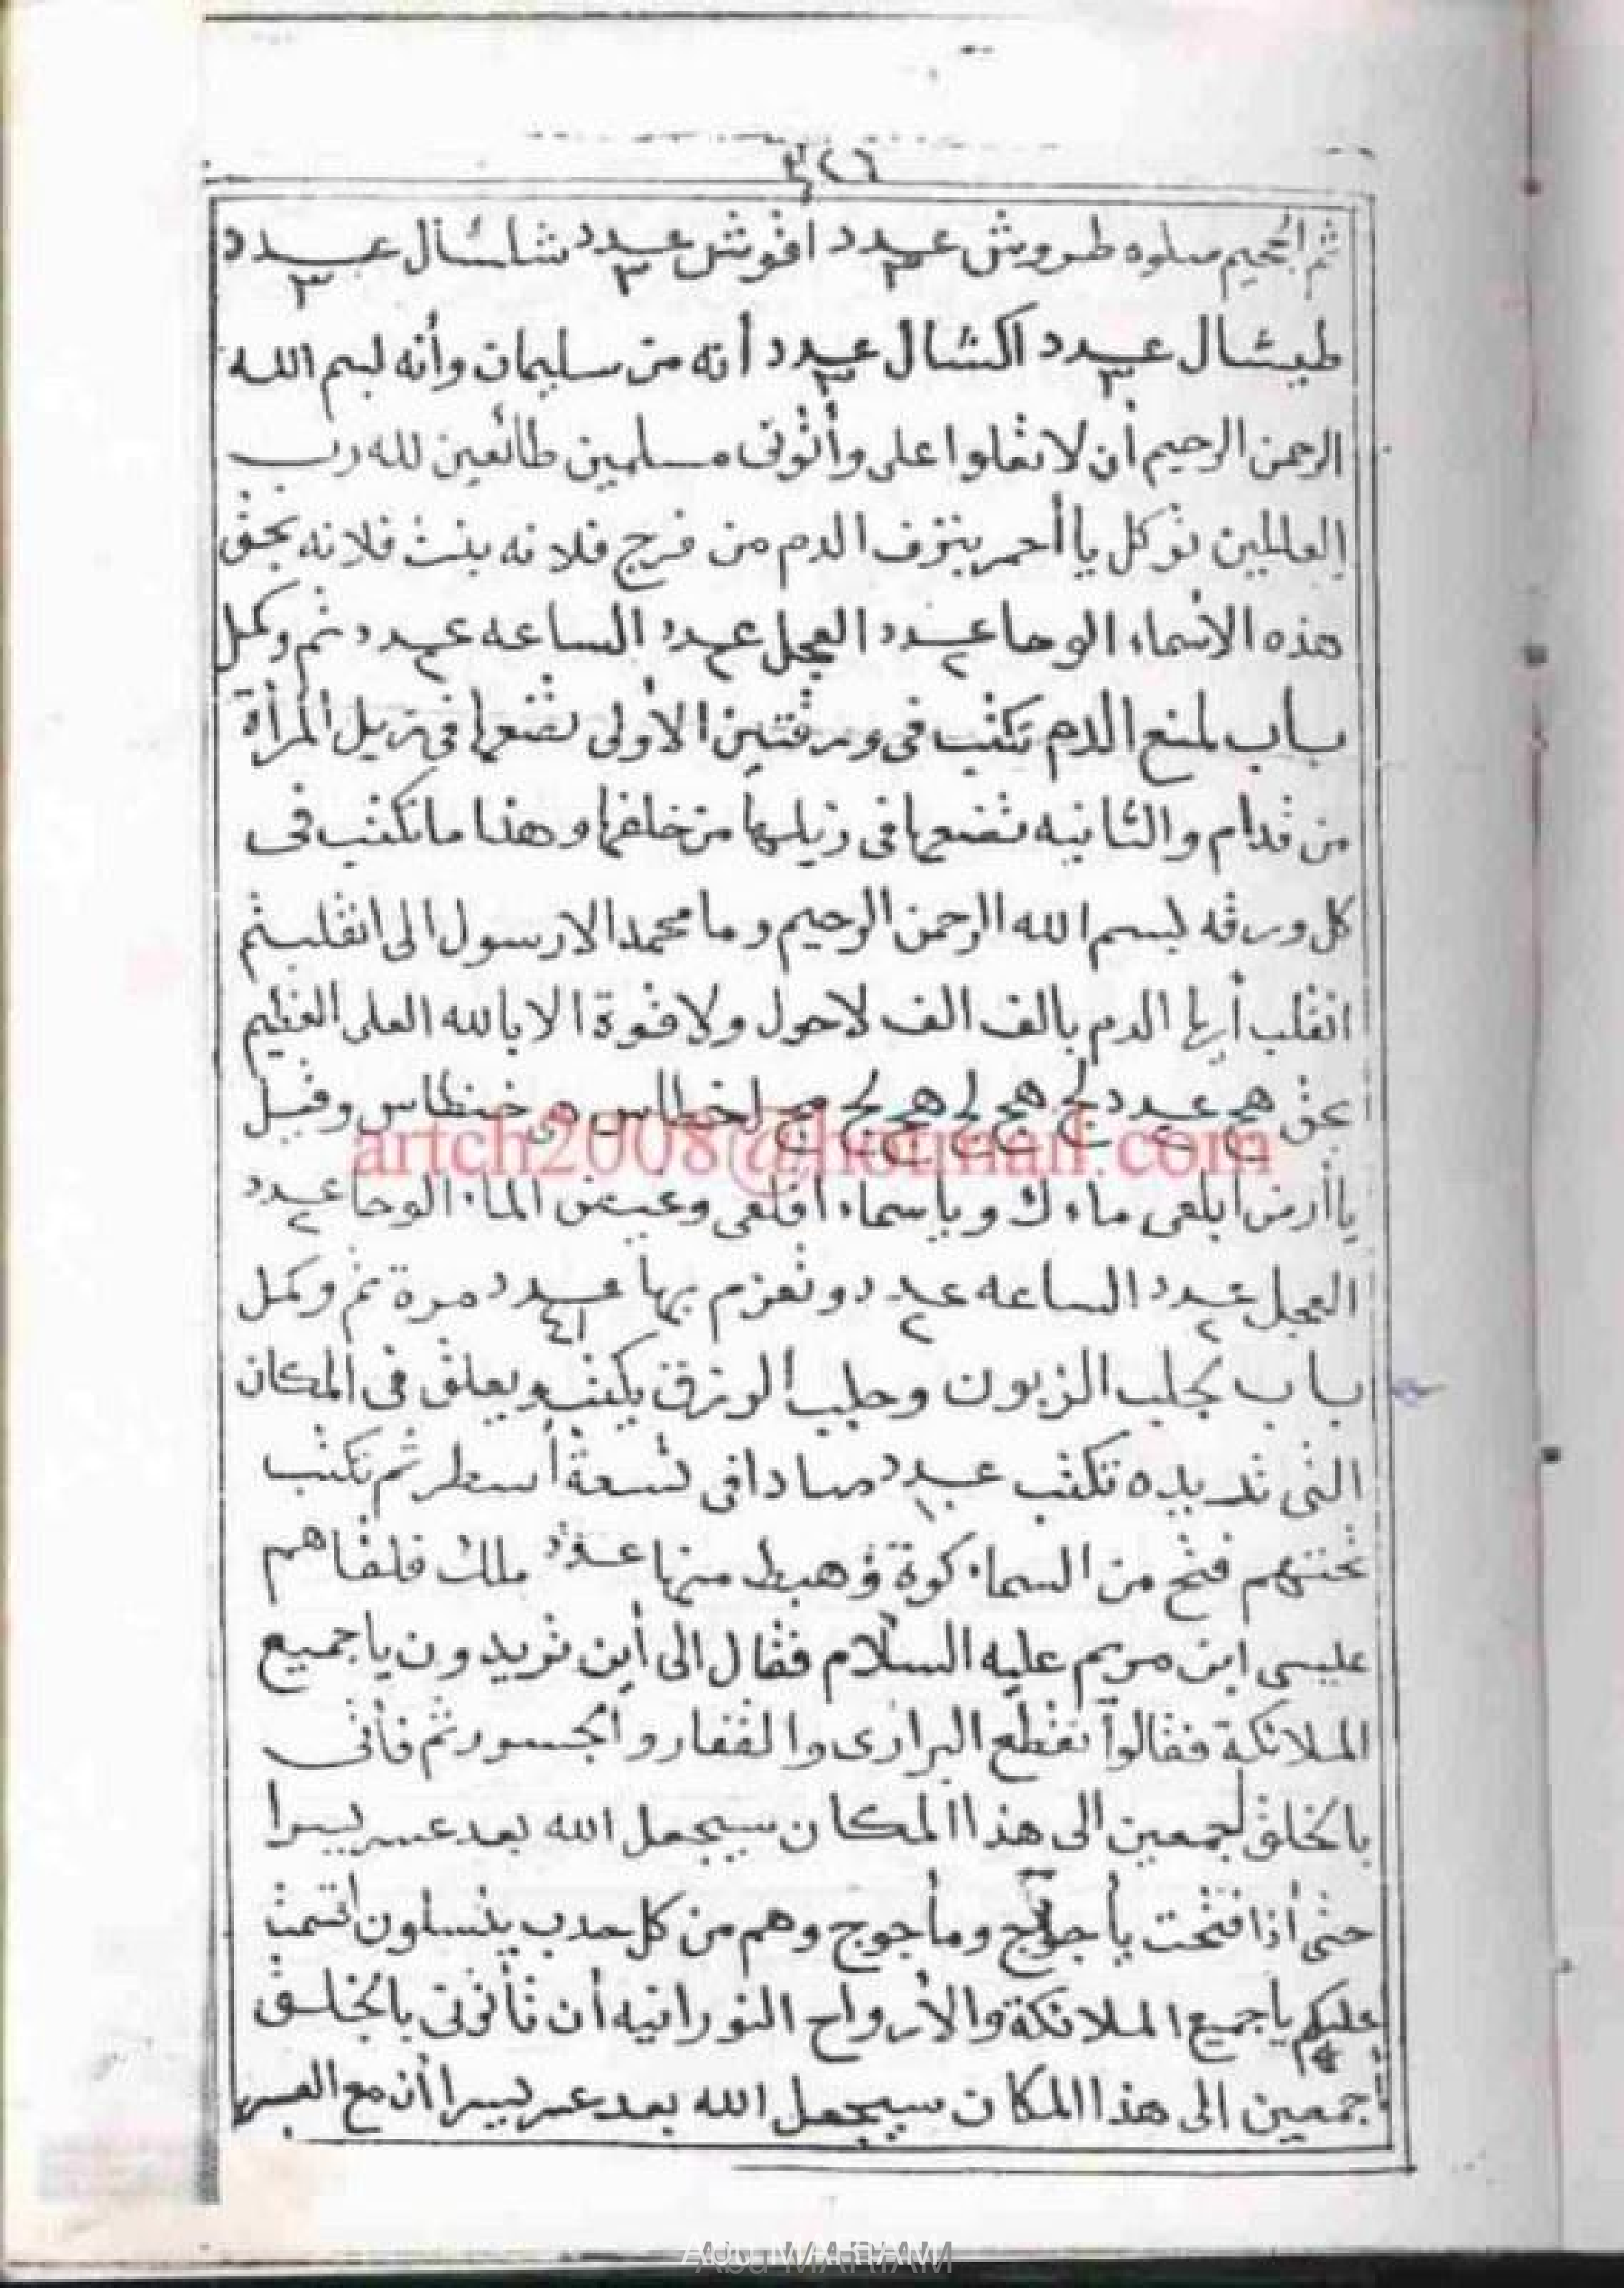 ٣٢٦
ثم الجحيم صلوه طروش عدد ٣ افوش عدد ٣ شاشال عدد ٣
طيشال عدد ٣ اكشال عدد ٣ أنه من سليمان وأنه بسم الله
الرحمن الرحيم أن لا تعلوا على وأتونى مسلمين طائعين لله رب
العالمين توكل يا أحمر بنزف الدم من فرج فلانه بنت فلانه بحق
هذه الأسماء الوحا عدد ٢ العجل عدد ٢ الساعه عدد ٢ تم وكمل
باب لمنع الدم تكتب فى ورقتين الأولى تضعها فى زيل المرأة
من قدام والثانيه تضعها فى زيلها من خلفها وهذا ما تكتب فى
كل ورقه بسم الله الرحمن الرحيم وما محمد الا رسول الى انقلبتم
انقلب أيها الدم بالف الف لا حول ولا قوة الا بالله العلى العظيم
بحق هج عدد لج هج لج هج لج مج لخطاس خنظاس وقيل
يا أرض أبلعى ماءك وياسماء اقلعى وغيض الماء الوحا عدد ٢
العجل عدد ٢ الساعه عدد ٢ وتعزم بها عدد ٤١ مرة تم وكمل
باب لجلب الزبون وجلب الرزق يكتب ويعلق فى المكان
التى تريده تكتب عدد صادا فى تسعة أسطر ثم تكتب
تحتهم فتح من السماء كوة وهبط منها عدد ملك فلقاهم
عليسى ابن مريم عليه السلام فقال الى أين تريدون يا جميع
الملائكة فقالوا نقطع البرارى والقفار والجسور ثم فأتى
بالخلق أجمعين الى هذا المكان سيجعل الله بعد عسر يسرا
حتى أذا فتحت يأجوج ومأجوج وهم من كل حدب ينسلون اقسمت
عليكم يا جميع الملائكة والأرواح النورانيه أن تأتونى بالخلق
أجمعين الى هذا المكان سيجعل الله بعد عسر يسرا أن مع العسر
artch2008@hotmail.com
Abu MARIAM